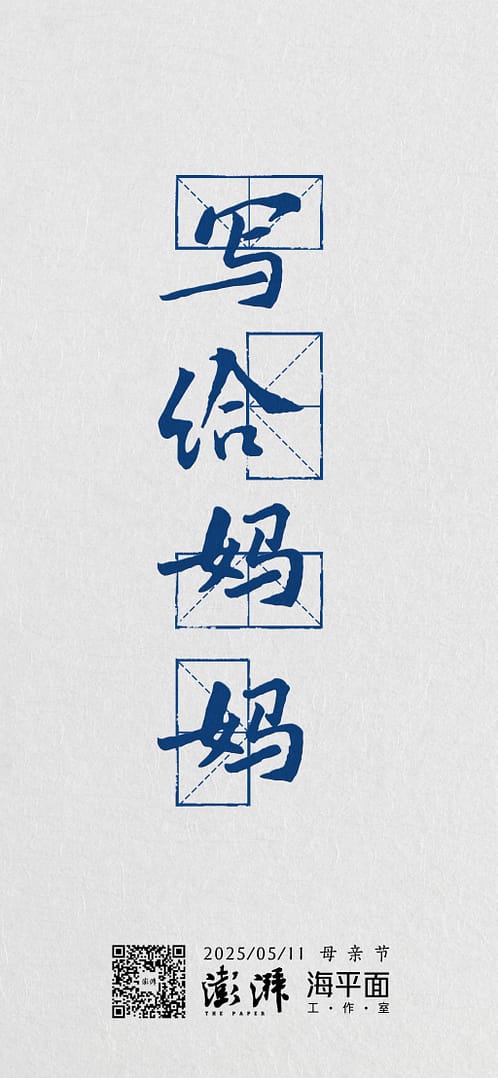 写给妈妈
2025/05/11 母亲节
澎湃
THE PAPER
海平面
工·作·室
澎湃